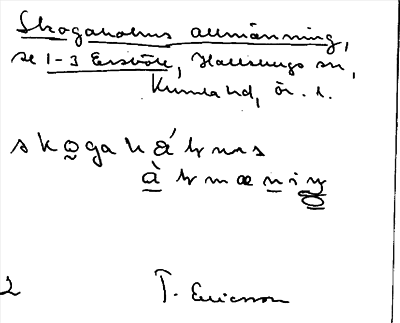 Skogaholms allmänning,
se 1-3 Ersböle, Hallsbergs sn,
Kumla hd, Ör. l.
skogahå´ɫms
àɫmæniŋ
2 T. Ericsson